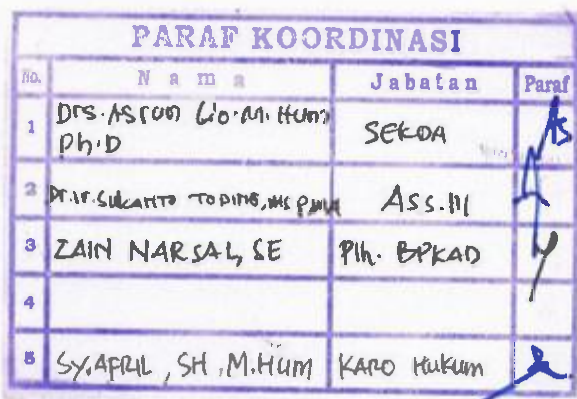 PARAF KOORDINASI
No. Nama Jabatan Paraf
1 Drs. Asrun Lio. M. Hum
Ph.D SEKDA
2 Dr. Ir. Sukanto Toding, Ass. III
3 ZAIN NARSAL, SE Plh. BPKAD
4
5 SY. APRIL, SH, M.Hum KARO Hukum